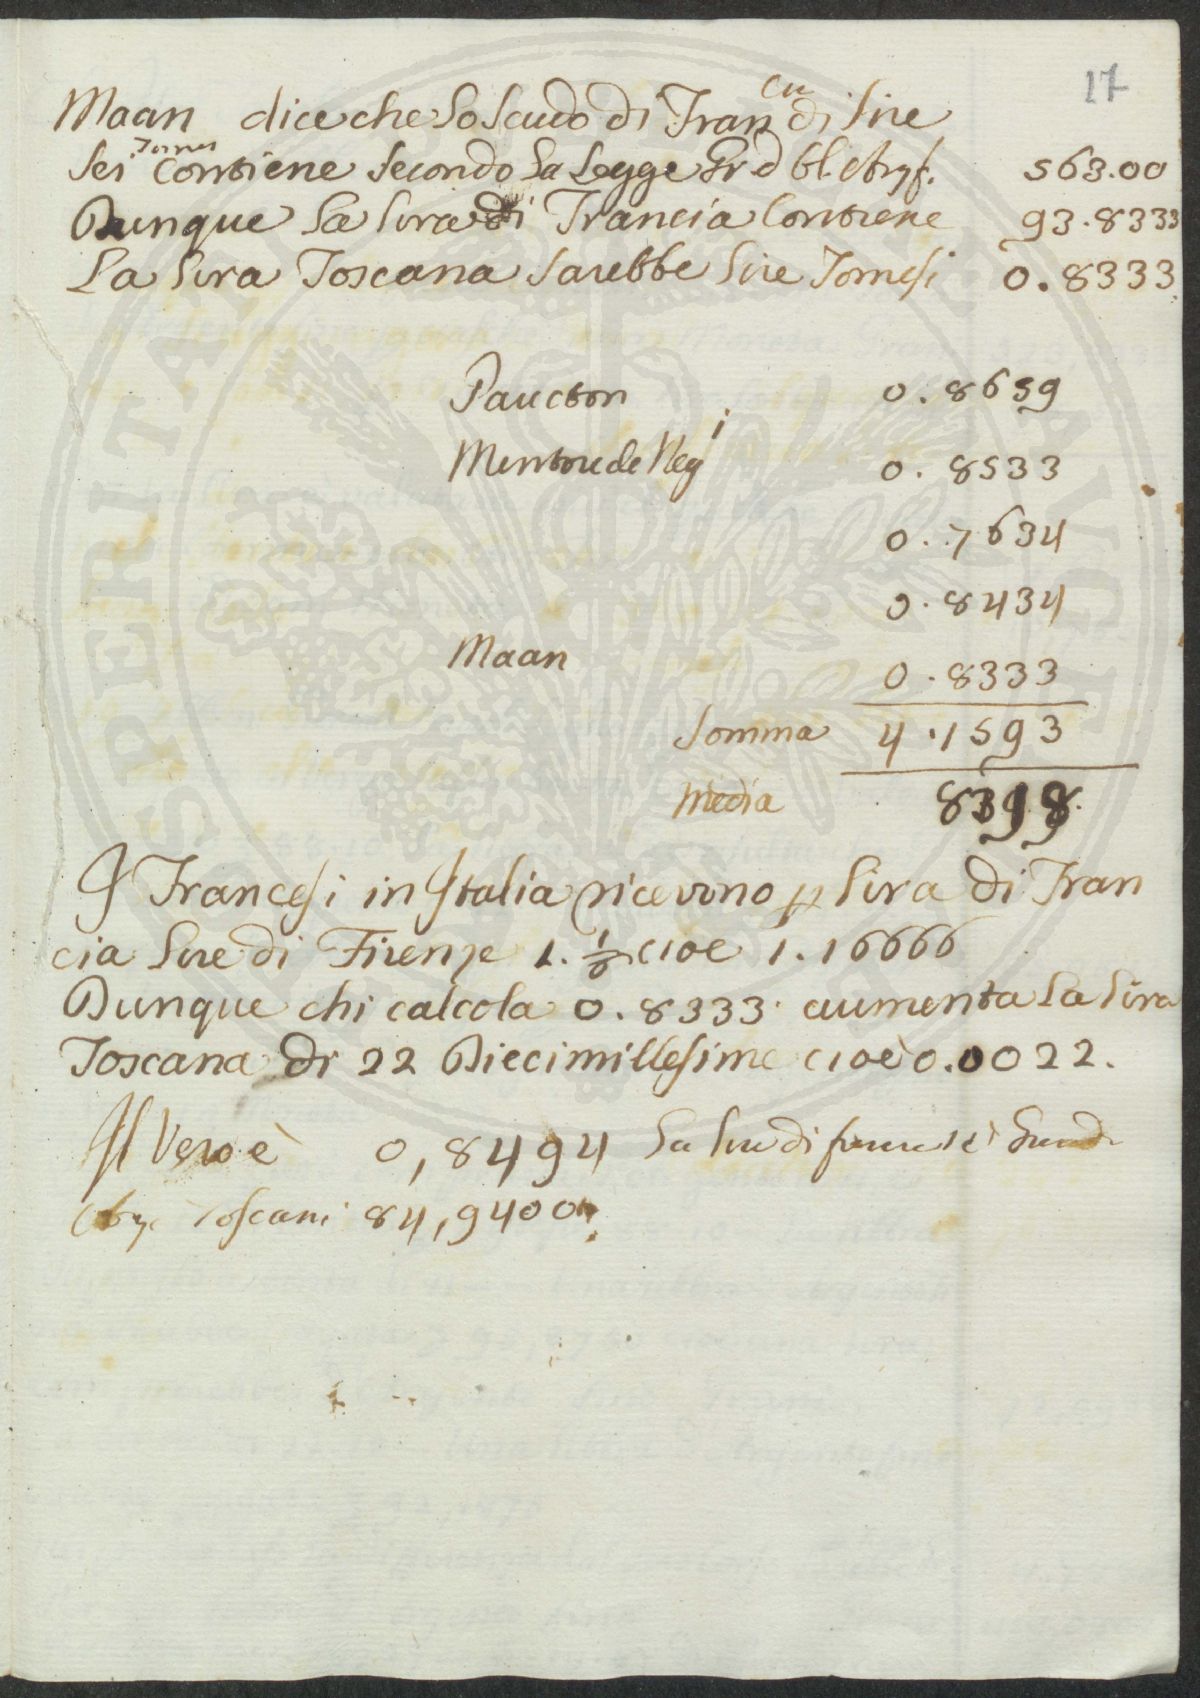 17
Maan dice che lo Scudo di Francia di lire
sei Tornesi Contiene secondo la Legge Gr d 563.00
Dunque la lira di Francia Contiene 93.8333
La lira Toscana sarebbe lire Tornesi 0.8333
Paucton 0.8659
Mentore de Neg.i 0.8533
0.7634
0.8434
Maan 0.8333
Somma 4.1593
Media 8398.
I Francesi in Italia ricevono p lira di Fran
cia lire di Firenze 1. 1/6 cioe 1.16666
Dunque chi calcola 0.8333. aumenta la lira
Toscana di 22 Diecimillesime cioè 0.0022.
Il Vero è 0,8494 la lira di
Toscani 84,9400.